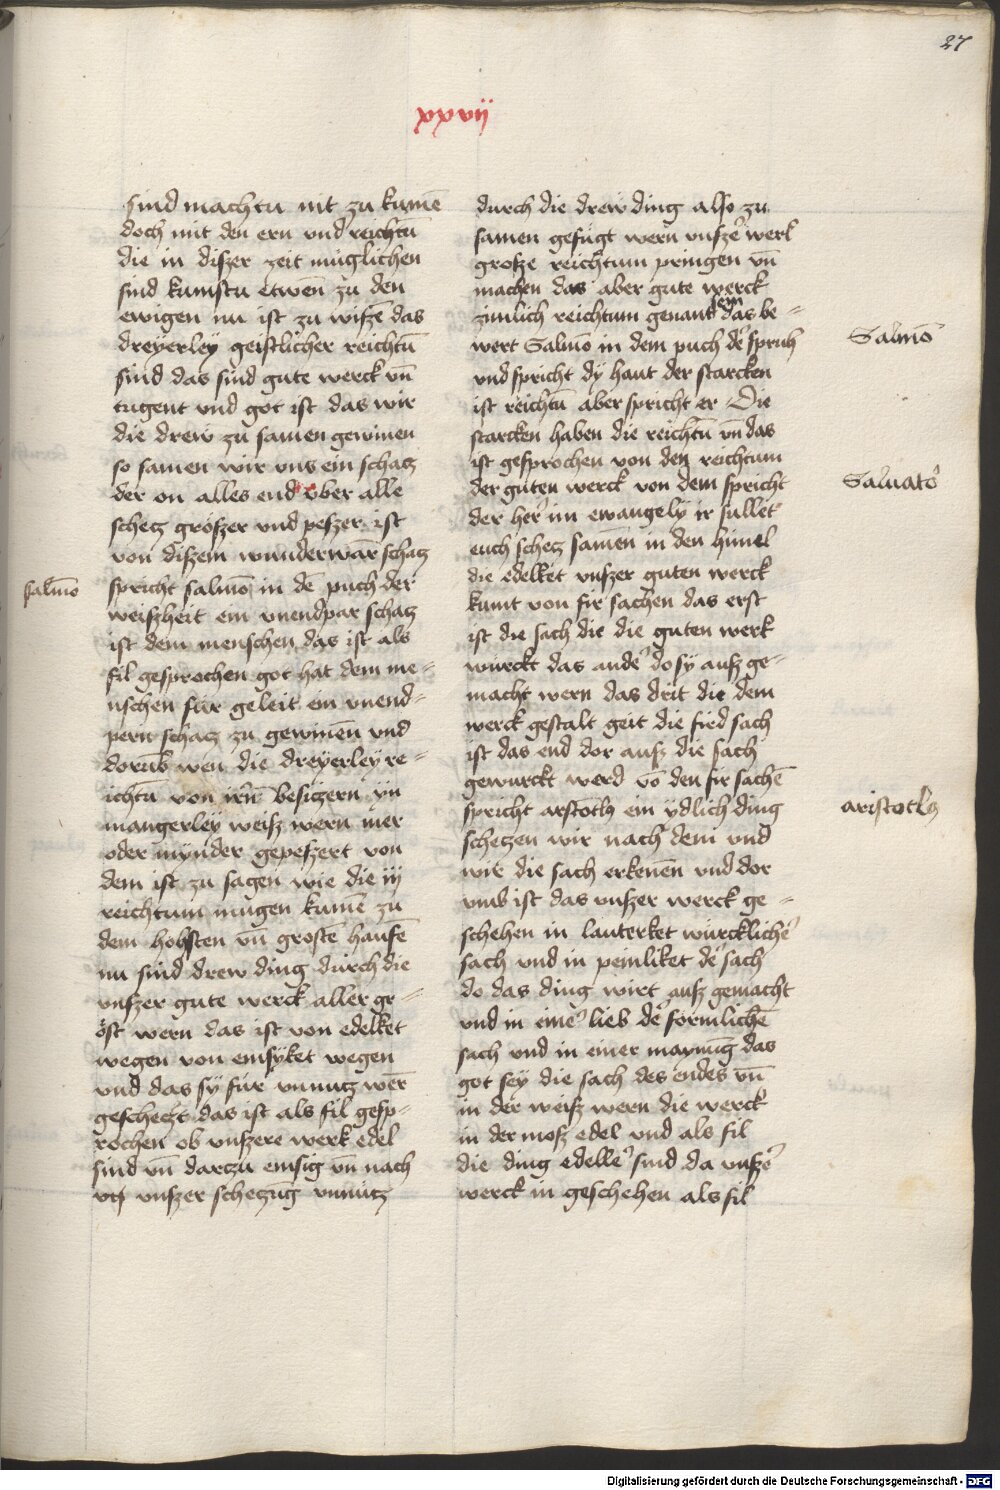 27
xxvij
sind machtu nit zu kumē
doch mit den ern vnd reichtū
die in diszer zeit müglichen
sind kumstu etwen zu den
ewigen nu ist zu wiszē das
dreyerley geistlicher reichtū
sind das sind gute werck vn̄
tugent vnd got ist das wir
die drew zu samen gewinen
so samen wir vns ein schacz
der on alles end vber alle
schecz groszer vnd peszer ist
von diszem wunderwar schacz
salmō
spricht salmō in de puch der
weiszheit ein vnendpar schacz
ist dem menschen das ist als
fil gesprochen got hat dem me=
nschen für geleit ein vnend=
pern schacz zu gewinen̄ vnd
dorūb wen die dreyerley re=
ichtū von irn̄ besiczern yn
mangerley weisz wern mer
oder mynder gepeszert von
dem ist zu sagen wie die iij
reichtum mugen kumē zu
dem hohsten vn̄ grostē haufē
nu sind drew ding durch die
vnszer gute werck aller gr=
öst wern das ist von edelket
wegen von emsyket wegen
vnd das sy für vnnucz wer̄
gescheczt das ist als fil gesp=
rochen ob vnszere werk edel
sind vn̄ darczu emsig vn̄ nach
vnszer scheczūg vnnücz
durch die drew ding also zu
samen gefügt wern vnszeˀ werk
grosze reichtum pringen vn̄
machen das aber gute werck
zimlich reichtum genant sein das be=
wert Salmō in dem puch deˀ spruh
Salmō
vnd spricht dy hant der starcken
ist reichtū aber spricht er Die
starcken haben die reichtū vn̄ das
ist gesprochen von den reichtum
der guten werck von dem spricht
Saluatoˀ
der herˀ im ewangely ir sullet
euch schecz samen in den himel
die edelket vnszer guten werck
kumt von fir sachen das erst
ist die sach die die guten werk
würckt das andeˀ do sy ausz ge=
macht wern das drit die dem
werck gestalt geit die fied sach
ist das end dor ausz die sach
gewurckt werd vō den fir sachē
spricht arstotls ein ydlich ding
aristotls
scheczen wir nach dem vnd
wir die sach erkenen̄ vnd dor
vmb ist das vnszer werck ge=
schehen in lauterket würcklicheˀ
sach vnd in peinliket deˀ sach
do das ding wirt ausz gemacht
vnd in eineˀ lieb deˀ formlichē
sach vnd in einer maynūg das
got sey die sach des endes vn̄
in der weisz wern die werck
in der mosz edel vnd als fil
die ding edelleˀ sind da vnszeˀ
werck in geschehen als fil
Digitalisierung gefördert durch die Deutsche Forschungsgemeinschaft - DFG